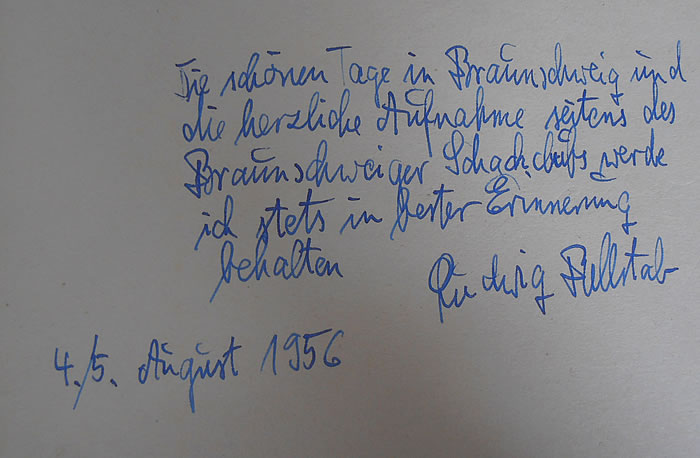 Die schönen Tage in Braunschweig und
die herzliche Aufnahme seitens des
Braunschweiger Schachclubs werde
ich stets in bester Erinnerung
behalten
Ludwig Rellstab
4./5. August 1956